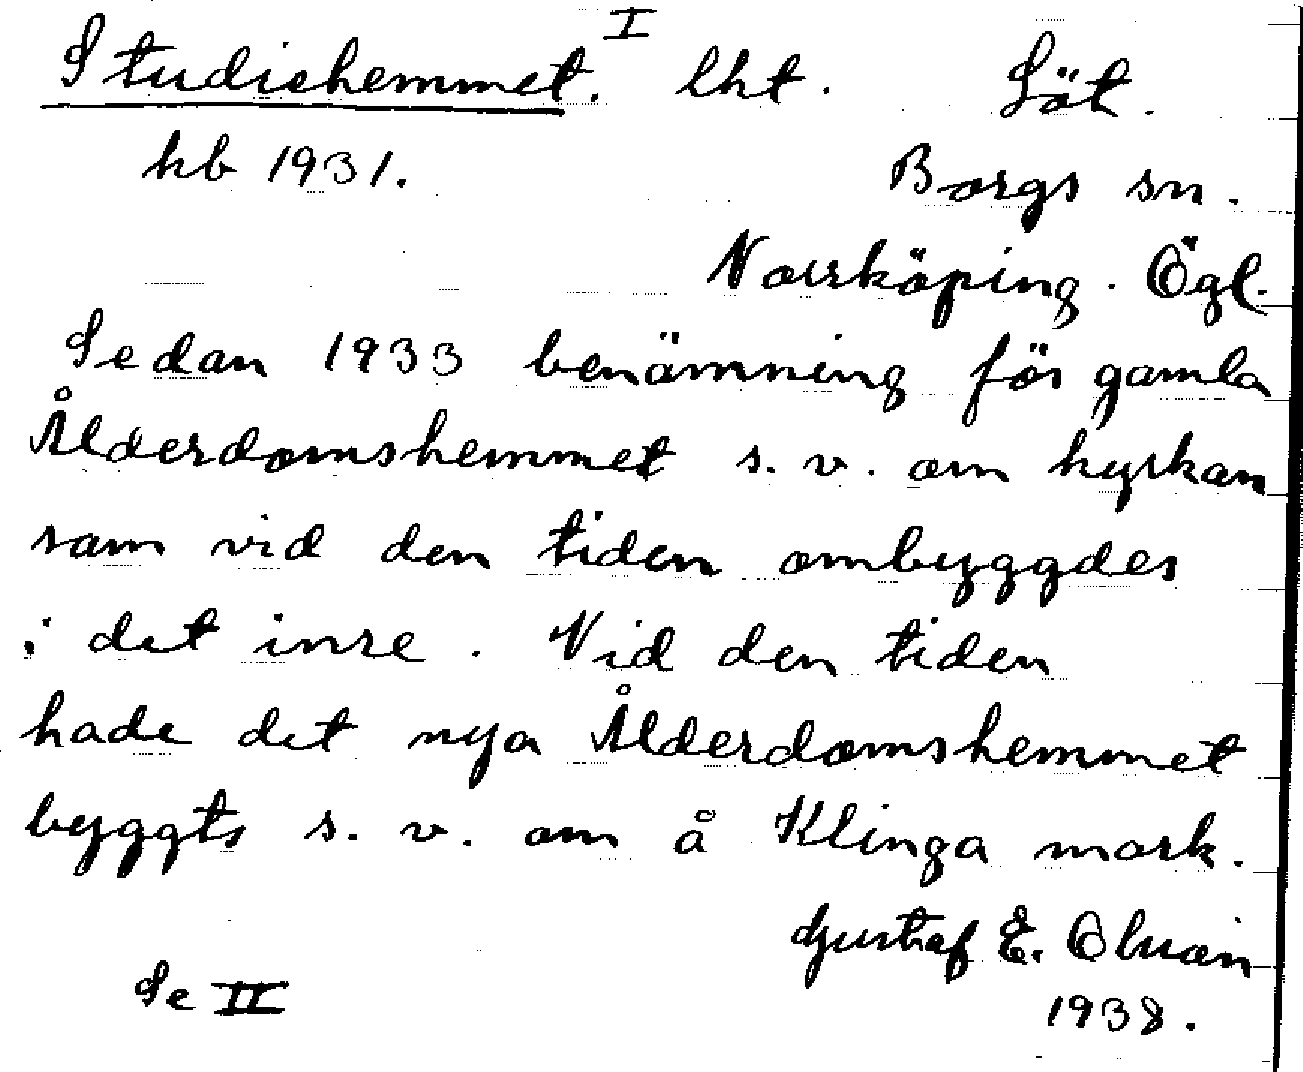 Studiehemmet. I lht. Löt.
hb 1931. Borgs sn.
Norrköping. Ögl.
Sedan 1933 benämning för gamla
Ålderdomshemmet s. v. om kyrkan
som vid den tiden ombyggdes
i det inre. Vid den tiden
hade det nya Ålderdomshemmet
byggts s. v. om å Klinga mark.
Gustaf E.
Se II 1938.